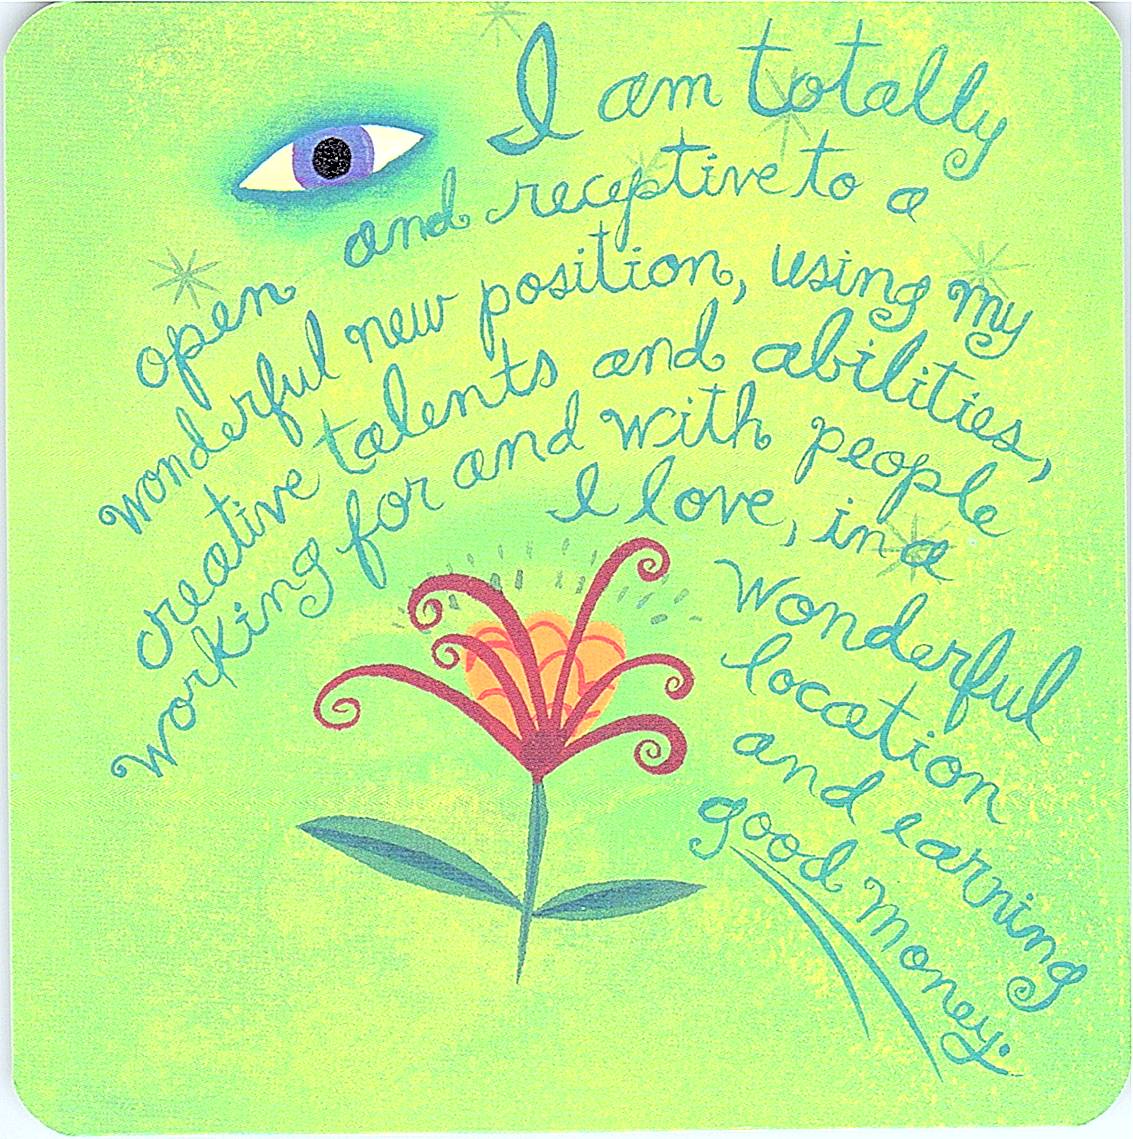 I am totally
open and receptive to a
wonderful new position, using my
creative talents and abilities,
working for and with people
I love, in a
wonderful
location
and earning
good money.